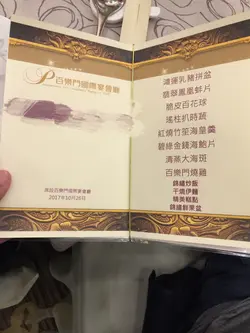 百樂門國際宴會廳
席設百樂門國際宴會廳
2017年10月28日
鴻運乳豬拼盆
翡翠鳳凰蚌片
脆皮百花球
瑤柱扒時蔬
紅燒竹笙海皇羹
碧綠金錢海鮑片
清蒸大海斑
百樂門燒雞
錦繡炒飯
干燒伊麵
精美糕點
錦繡鮮果盆